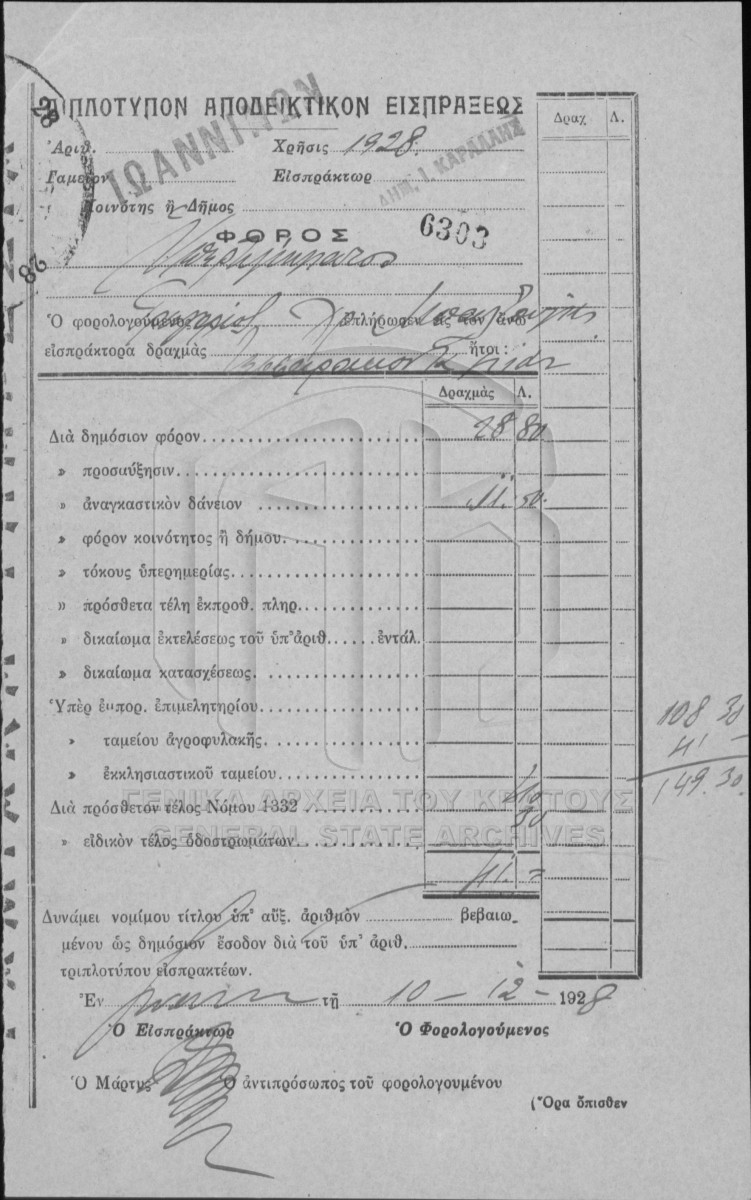 ΔΙΠΛΟΤΥΠΟΝ ΑΠΟΔΕΙΚΤΙΚΟΝ ΕΙΣΠΡΑΞΕΩΣ
Δραχ Λ.
Ἀριθ. Χρῆσις 1928
ΙΩΑΝΝΙΝΩΝ
Ταμεῖον Εἰσπράκτωρ
ΔΗΜ. Ι. ΚΑΡΑΔΑΗΣ
Κοινότης ἢ Δῆμος
28
ΦΟΡΟΣ 6303
28
Ὁ φορολογούμενος ἐπλήρωσεν εἰς τὸν ἄνω
εἰσπράκτορα δραχμὰς ἤτοι:
Δραχμὰς Λ.
Διὰ δημόσιον φόρον 28 80
» προσαύξησιν
» ἀναγκαστικὸν δάνειον 11. 50
» φόρον κοινότητος ἢ δήμου
» τόκους ὑπερημερίας
» πρόσθετα τέλη ἐκπροθ. πληρ.
» δικαίωμα ἐκτελέσεως τοῦ ὑπ' ἀριθ. ἐντάλ.
» δικαίωμα κατασχέσεως
Ὑπὲρ ἐμπορ. ἐπιμελητηρίου
» ταμείου ἀγροφυλακῆς
» ἐκκλησιαστικοῦ ταμείου
108 30
41 -
149.30
ΓΕΝΙΚΑ ΑΡΧΕΙΑ ΤΟΥ ΚΡΑΤΟΥΣ
Διὰ πρόσθετον τέλος Νόμου 1332
GENERAL STATE ARCHIVES
» εἰδικὸν τέλος ὁδοστρωμάτων
41. =
Δυνάμει νομίμου τίτλου ὑπ' αὔξ. ἀριθμὸν βεβαιω-
μένου ὡς δημόσιον ἔσοδον διὰ τοῦ ὑπ' ἀριθ.
τριπλοτύπου εἰσπρακτέων.
Ἐν τῇ 10 - 12 - 1928
Ὁ Εἰσπράκτωρ Ὁ Φορολογούμενος
Ὁ Μάρτυς Ὁ ἀντιπρόσωπος τοῦ φορολογουμένου
(Ὅρα ὄπισθεν